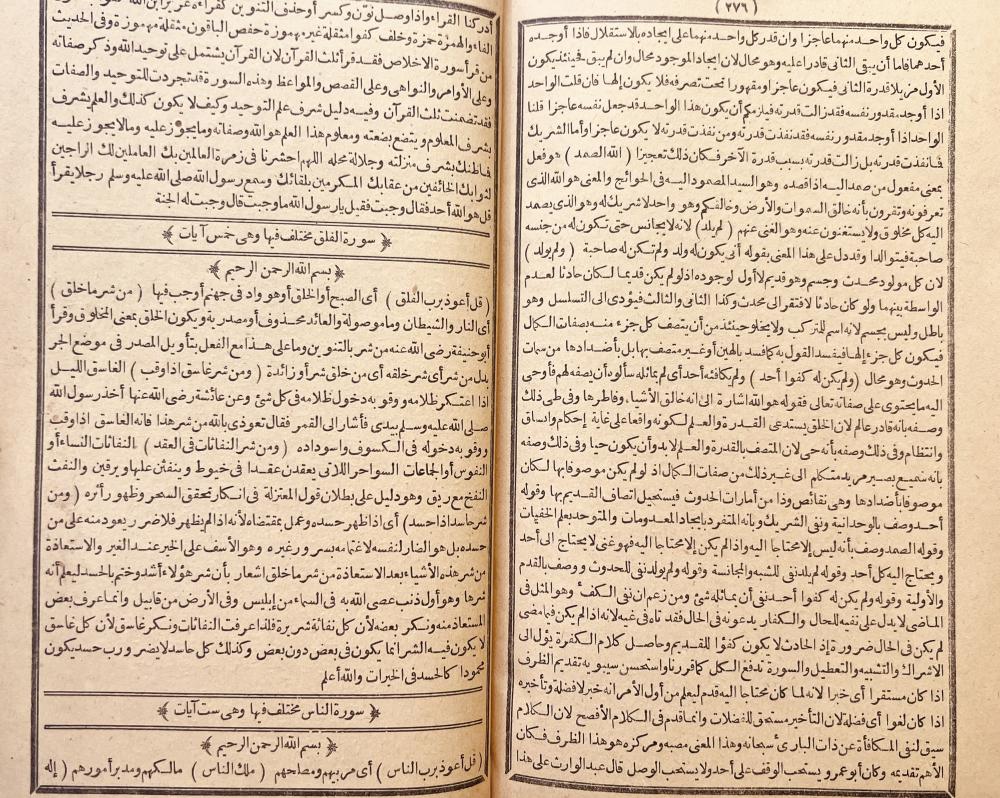 (٢٧٦)
فيكون كل واحد منهما عاجزا وان قدر كل واحد منهما على ايجاده بالاستقلال فاذا أوجده
أحدهما فاما أن يبقى الثانى قادرا عليه وهو محال لان ايجاد الموجود محال وان لم يبق فحينئذ يكون
الأول مزيلا قدرة الثانى فيكون عاجزا ومقهورا تحت تصرفه فلا يكون إلها فان قلت الواحد
اذا أوجد مقدور نفسه فقد زالت قدرته فيلزمكم أن يكون هذا الواحد قد جعل نفسه عاجزا قلنا
الواحد اذا أوجد مقدور نفسه فقد نفذت قدرته ومن نفذت قدرته لا يكون عاجزا وأما الشريك
فانفذت قدرته بل زالت قدرته بسبب قدرة الآخر فكان ذلك تعجيزا (الله الصمد) هو فعل
بمعنى مفعول من صمد اليه اذا قصده وهو السيد المصمود اليه فى الحوائج والمعنى هو الله الذى
تعرفونه وتقرون بأنه خالق السموات والأرض وخالقكم وهو واحد لا شريك له وهو الذى يصمد
اليه كل مخلوق ولا يستغنون عنه وهو الغنى عنهم (لم يلد) لانه لا يجانس حتى تكون له من جنسه
صاحبة فيتوالدا وقد دل على هذا المعنى بقوله أنى يكون له ولد ولم تكن له صاحبة (ولم يولد)
لان كل مولود محدث وجسم وهو قديم لا أول لوجوده اذ لو لم يكن قديما لكان حادثا لعدم
الواسطة بينهما ولو كان حادثا لافتقر الى محدث وكذا الثانى والثالث فيؤدى الى التسلسل وهو
باطل وليس بجسم لانه اسم للمتركب ولا يخلو حينئذ من أن يتصف كل جزء منه بصفات الكمال
فيكون كل جزء إلها فيفسد القول به كما فسد بالهين أو غير متصف بها بل بأضدادها من سمات
الحدوث وهو محال (ولم يكن له كفوا أحد) ولم يكافئه أحد أى لم يماثله سألوه أن يصفه لهم فأوحى
اليه ما يحتوى على صفاته تعالى فقوله هو الله اشارة الى انه خالق الأشياء وفاطرها وفى طى ذلك
وصفه بأنه قادر عالم لان الخلق يستدعى القدرة والعلم لكونه واقعا على غاية إحكام واتساق
وانتظام وفى ذلك وصفه بأنه حى لان المتصف بالقدرة والعلم لا بد وأن يكون حيا وفى ذلك وصفه
بانه سميع بصير مريد متكلم الى غير ذلك من صفات الكمال اذ لو لم يكن موصوفا بها لكان
موصوفا بأضدادها وهى نقائص وذا من أمارات الحدوث فيستحيل اتصاف القديم بها وقوله
أحد وصف بالوحدانية ونفى الشريك وبأنه المتفرد بايجاد المعدومات والمتوحد بعلم الخفيات
وقوله الصمد وصف بأنه ليس إلا محتاجا اليه واذا لم يكن إلا محتاجا اليه فهو غنى لا يحتاج الى أحد
ويحتاج اليه كل أحد وقوله لم يلد نفى للشبه والمجانسة وقوله ولم يولد نفى للحدوث ووصف بالقدم
والأولية وقوله ولم يكن له كفوا أحد نفى أن يماثله شئ ومن زعم ان نفى الكفء وهو المثل فى
الماضى لا يدل على نفيه للحال والكفار يدعونه فى الحال فقد تاه فى غيه لانه اذا لم يكن فيما مضى
لم يكن فى الحال ضرورة إذ الحادث لا يكون كفؤا للقديم وحاصل كلام الكفرة يؤل الى
الاشراك والتشبيه والتعطيل والسورة تدفع الكل كما قررنا واستحسن سيبويه تقديم الظرف
اذا كان مستقرا أى خبرا لانه لما كان محتاجا اليه قدم ليعلم من أول الأمر انه خبر لا فضلة وتأخيره
اذا كان لغوا أى فضلة لان التأخير مستحق للفضلات وانما قدم فى الكلام الأفصح لان الكلام
سيق لنفى المكافأة عن ذات البارئ سبحانه وهذا المعنى مصبه ومركزه هو هذا الظرف فكان
الأهم تقديمه وكان أبو عمرو يستحب الوقف على أحد ولا يستحب الوصل قال عبد الوارث على هذا
أدركنا القراء واذا وصل نون وكسر أو حذف التنوين كقراءة عزير ابن الله
الفاء والهمزة حمزة وخلف كفوا مثقلة غير مهموزة حفص الباقون مثقلة مهموزة وفى الحديث
من قرأ سورة الاخلاص فقد قرأ ثلث القرآن لان القرآن يشتمل على توحيد الله وذكر صفاته
وعلى الأوامر والنواهى وعلى القصص والمواعظ وهذه السورة قد تجردت للتوحيد والصفات
فقد تضمنت ثلث القرآن وفيه دليل شرف علم التوحيد وكيف لا يكون كذلك والعلم يشرف
بشرف المعلوم ويتضع بضعته ومعلوم هذا العلم هو الله وصفاته وما يجوز عليه وما لا يجوز عليه
فما ظنك بشرف منزلته وجلالة محله اللهم احشرنا فى زمرة العالمين بك العاملين لك الراجين
لثوابك الخائفين من عقابك المكرمين بلقائك وسمع رسول الله صلى الله عليه وسلم رجلا يقرأ
قل هو الله أحد فقال وجبت فقيل يا رسول الله ما وجبت قال وجبت له الجنة
﴿ سورة الفلق مختلف فيها وهى خمس آيات ﴾
﴿ بسم الله الرحمن الرحيم ﴾
(قل أعوذ برب الفلق) أى الصبح أو الخلق أو هو واد فى جهنم أو جب فيها (من شر ما خلق)
أى النار والشيطان وما موصولة والعائد محذوف أو مصدرية ويكون الخلق بمعنى المخلوق وقرأ
أبو حنيفة رضى الله عنه من شر بالتنوين وما على هذا مع الفعل بتأويل المصدر فى موضع الجر
بدل من شر أى شر خلقه أى من خلق شر أو زائدة (ومن شر غاسق اذا وقب) الغاسق الليل
اذا اعتكر ظلامه ووقوبه دخول ظلامه فى كل شئ وعن عائشة رضى الله عنها أخذ رسول الله
صلى الله عليه وسلم بيدى فأشار الى القمر فقال تعوذى بالله من شر هذا فانه الغاسق اذا وقب
ووقوبه دخوله فى الكسوف واسوداده (ومن شر النفاثات فى العقد) النفاثات النساء أو
النفوس أو الجماعات السواحر اللاتى يعقدن عقدا فى خيوط وينفثن عليها ويرقين والنفث
النفخ مع ريق وهو دليل على بطلان قول المعتزلة فى انكار تحقق السحر وظهور أثره (ومن
شر حاسد اذا حسد) أى اذا ظهر حسده وعمل بمقتضاه لأنه اذا لم يظهر فلا ضرر يعود منه على من
حسده بل هو الضار لنفسه لاغتمامه بسرور غيره وهو الأسف على الخير عند الغير والاستعاذة
من شر هذه الأشياء بعد الاستعاذة من شر ما خلق اشعار بأن شر هؤلاء أشد وختم بالحسد ليعلم أنه
شرها وهو أول ذنب عصى الله به فى السماء من إبليس وفى الأرض من قابيل وانما عرف بعض
المستعاذ منه ونكر بعضه لأن كل نفاثة شريرة فلذا عرفت النفاثات ونكر غاسق لأن كل غاسق
لا يكون فيه الشر انما يكون فى بعض دون بعض وكذلك كل حاسد لا يضر ورب حسد يكون
محمودا كالحسد فى الخيرات والله أعلم
﴿ سورة الناس مختلف فيها وهى ست آيات ﴾
﴿ بسم الله الرحمن الرحيم ﴾
(قل أعوذ برب الناس) أى مربيهم ومصلحهم (ملك الناس) مالكهم ومدبر أمورهم (إله